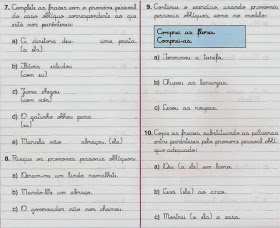 7. Complete as frases com o pronome pessoal
do caso oblíquo correspondente ao que
está nos parênteses:
a) A diretora deu uma pasta.
(a ela)
b) Flávia estudou
(com eu)
c) Jume chegou
(com nós)
d) O gatinho olhou para
(eu)
e) Marcelo não abraçou. (ela)
8. Risque os pronomes pessoais oblíquos:
a) Deram-me um lindo ramalhete.
b) Mando-lhe um abraço.
c) O governador não nos chamou.
9. Continue o exercício, usando pronomes
pessoais oblíquos, como no modelo:
Comprei as flores.
Comprei-as.
a) Terminou a tarefa.
b) Chupou as laranjas.
c) Lavou as roupas.
10. Copie as frases, substituindo as palavras
entre parênteses pelo pronome pessoal oblí-
quo adequado:
a) Deu (a ele) um livro.
b) Leva (ela) ao circo.
c) Mostrei (a ela) a casa.